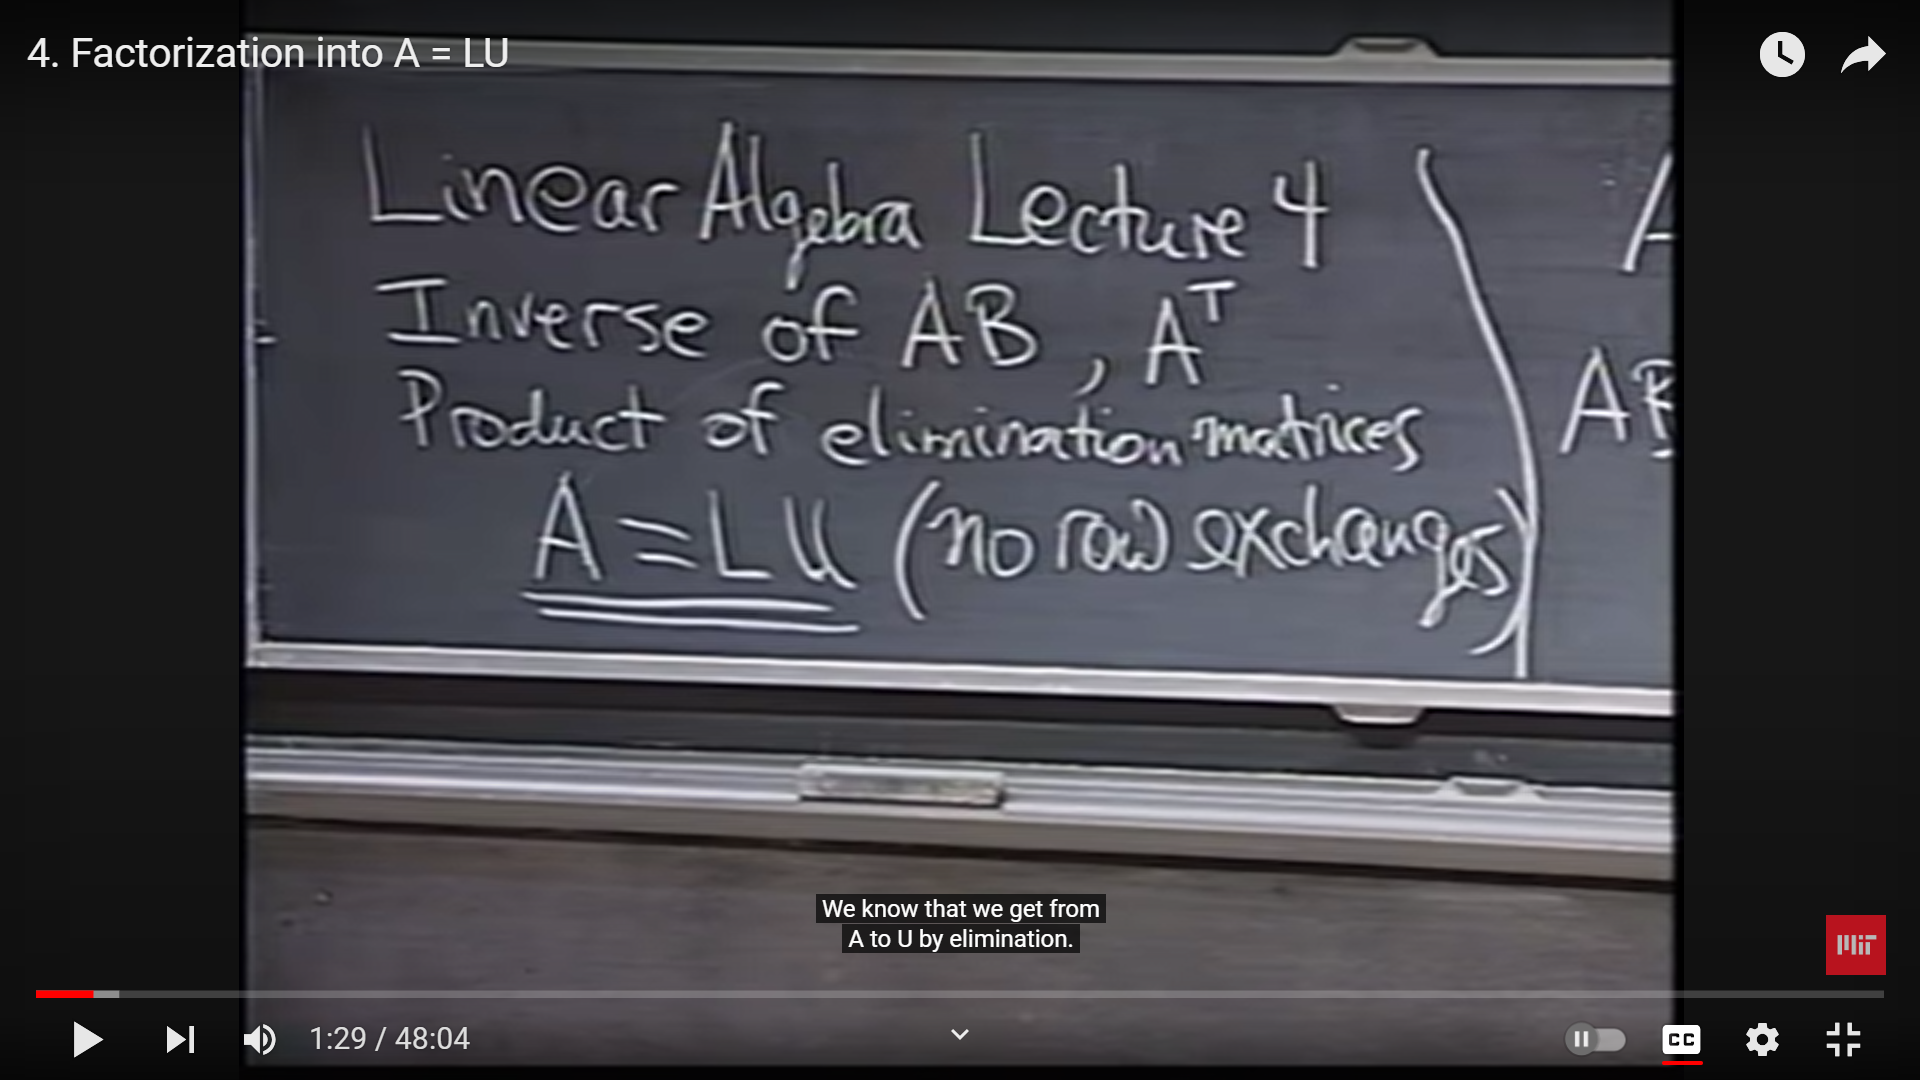 4. Factorization into A = LU
Linear Algebra Lecture 4
Inverse of AB, Aᵀ
Product of elimination matrices
A = LU (no row exchanges)
A
AB
We know that we get from
A to U by elimination.
MIT
1:29 / 48:04
CC